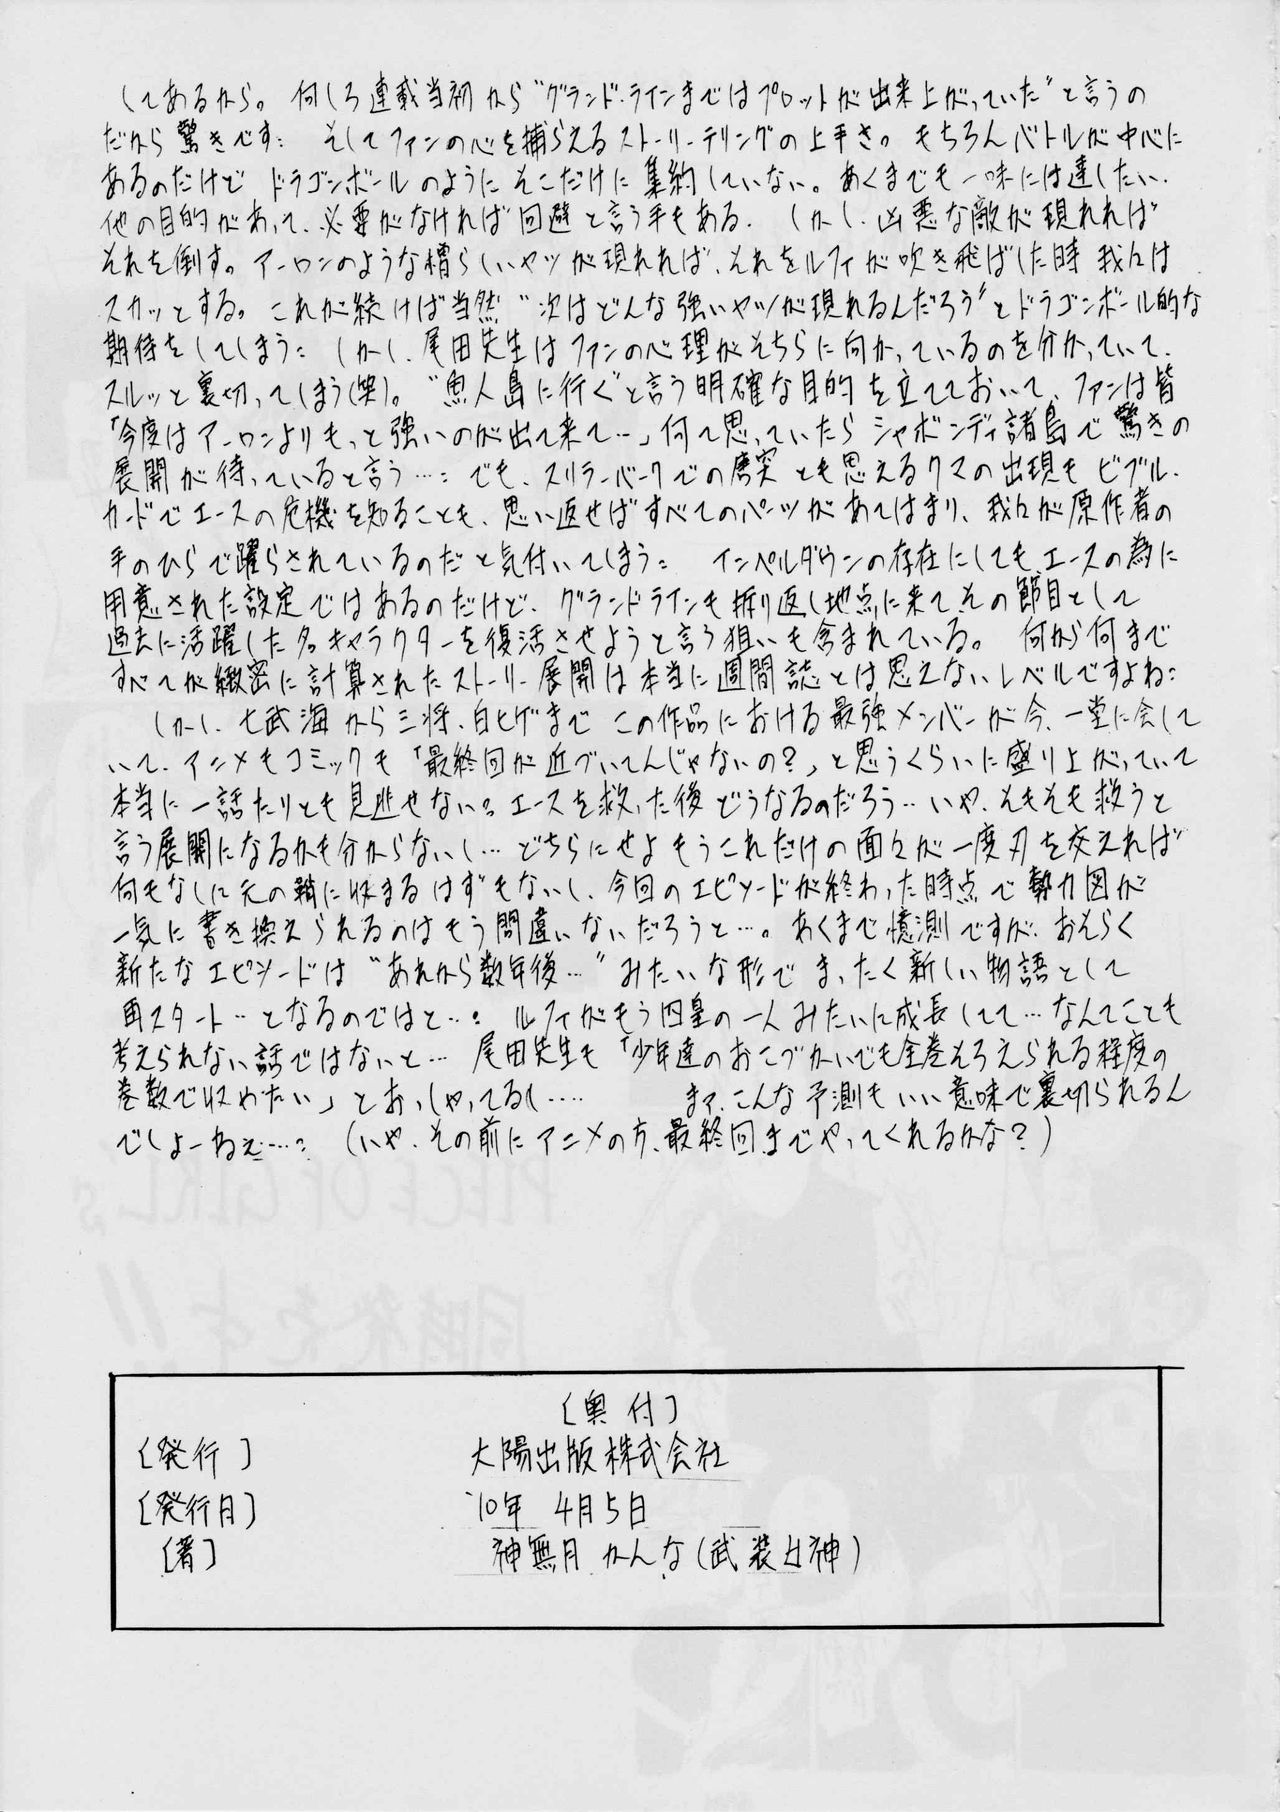 してあるから。 何しろ連載当初から“グランド・ラインまではプロットが出来上がっていた”と言うの
だから驚きです: そしてファンの心を捕らえるストーリーテリングの上手さ。もちろんバトルが中心に
あるのだけど ドラゴンボールのようにそこだけに集約していない。あくまでも一味には達したい、
他の目的があって、必要がなければ回避と言う手もある. しかし、凶悪な敵が現れれば
それを倒す。アーロンのような憎らしいヤツが現れれば、それをルフィが吹き飛ばした時 我々は
スカッとする。これが続けば当然“次はどんな強いヤツが現れるんだろう”とドラゴンボール的な
期待をしてしまう: しかし、尾田先生はファンの心理がそちらに向かっているのを分かっていて、
スルッと裏切ってしまう(笑)。“魚人島に行く”と言う明確な目的を立てておいて、ファンは皆
「今度はアーロンよりもっと強いのが出て来て…」何て思っていたらシャボンディ諸島で驚きの
展開が待っていると言う…: でも、スリラーバークでの唐突とも思えるクマの出現もビブル・
カードでエースの危機を知ることも、思い返せばすべてのパーツがあてはまり、我々が原作者の
手のひらで躍らされているのだと気付いてしまう: インペルダウンの存在にしても、エースの為に
用意された設定ではあるのだけど、グランドラインも折り返し地点に来て、その節目として
過去に活躍した名キャラクターを復活させようと言う狙いも含まれている。 何から何まで
すべてが緻密に計算されたストーリー展開は本当に週間誌とは思えないレベルですよね:
しかし、七武海から三将、白ヒゲまで この作品における最強メンバーが今、一堂に会して
いて、アニメもコミックも「最終回が近づいてんじゃないの?」と思うくらいに盛り上がっていて
本当に一話たりとも見逃せない。エースを救った後どうなるのだろう‥いや、そもそも救うと
言う展開になるかも分からないし…どちらにせよもうこれだけの面々が一度刃を交えれば
何もなしに元の鞘に収まるはずもないし、今回のエピソードが終わった時点で勢力図が
一気に書き換えられるのはもう間違いないだろうと…。あくまで憶測ですが、おそらく
新たなエピソードは“あれから数年後…”みたいな形でまったく新しい物語として
再スタート‥となるのではと…: ルフィがもう四皇の一人みたいに成長してて…なんてことも
考えられない話ではないと… 尾田先生も「少年達のおこづかいでも全巻そろえられる程度の
巻数で収めたい」とおっしゃってるし…. まァ、こんな予測もいい意味で裏切られるん
でしょーねぇ…: (いや、その前にアニメの方、最終回までやってくれるかな?)
[奥付]
[発行] 大陽出版株式会社
[発行日] '10年 4月5日
[著] 神無月かんな(武装女神)